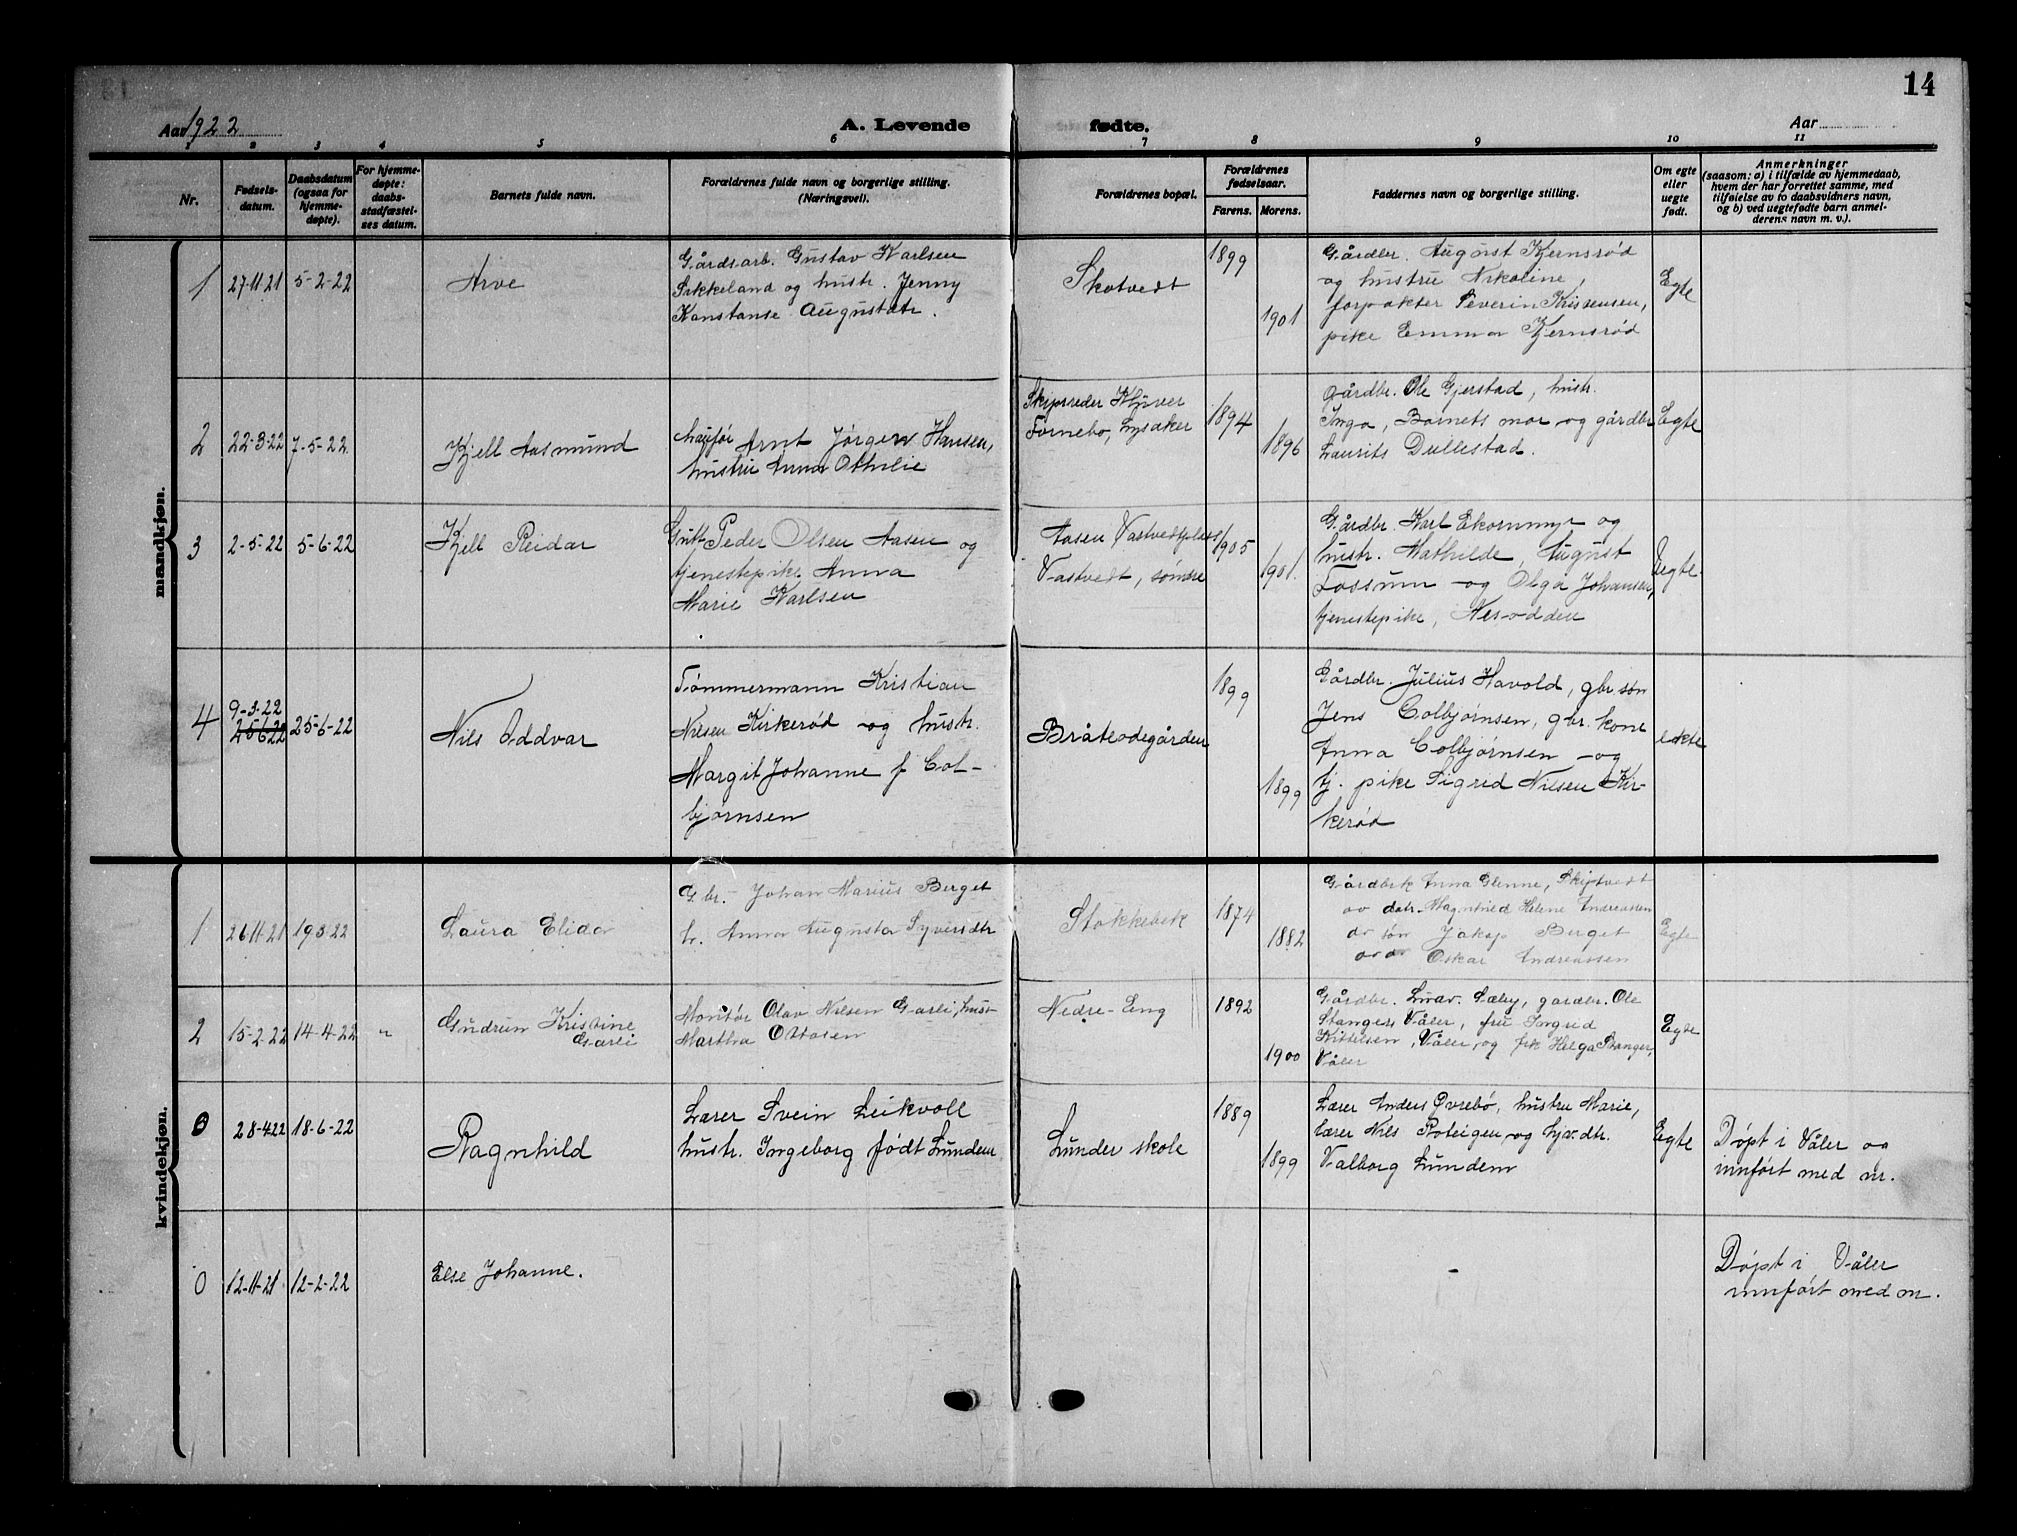 14
Aar 1922
A. Levende fødte.
Aar
1 2 3 4 5 6 7 8 9 10 11
Nr.
Fødsels-
datum.
Daabsdatum
(ogsaa for
hjemme-
døpte).
For hjemme-
døpte:
daabs-
stadfæstel-
ses datum.
Barnets fulde navn.
Forældrenes fulde navn og borgerlige stilling.
(Næringsvei).
Forældrenes bopæl.
Forældrenes
fødselsaar.
Farens. Morens.
Faddernes navn og borgerlige stilling.
Om egte
eller
uegte
født.
Anmerkninger
(saasom: a) i tilfælde av hjemmedaab,
hvem der har forrettet samme, med
tilføielse av to daabsvidners navn,
og b) ved uegtefødte barn anmel-
derens navn m. v.).
mandkjøn.
1
27-11-21
5-2-22
Arve
Gårdsarb. Gustav Karlsen
Sikkeland og hustr. Jenny
Konstanse Augustdtr.
Skotvedt
1899
1901
Gårdbr. August Kjernsrød
og hustru Nikoline,
forpakter Severin Kristensen,
pike Emma Kjernsrød
Egte
2
22-3-22
7-5-22
Kjell Aasmund
chaufør Arnt Jørgen Hansen,
hustru Anna Othilie
Skipsreder Klüver
Fornebo, Lysaker
1894
1896
gårdbr. Ole Gjerstad, hustr.
Inga, Barnets mor og gårdbr
Laurits Dullestad.
Egte
3
2-5-22
5-6-22
Kjell Reidar
Gutt Peder Olsen Aasen og
tjenestepike Anna
Marie Karlsen
Aasen Vastvedtplass
Vastvedt, søndre
1905
1901.
Gårdbr. Karl Ekornmyr og
hustr. Mathilde, August
Fossum og Olga Johansen,
tjenestepike, Nesodden
Uegte
4
9-3-22
25-6-22
25-6-22
Nils Oddvar
Tømmermann Kristian
Nilsen Kirkerød og hustr.
Margit Johanne f Col-
bjørnsen
Bråtødegården
1899
1899
Gårdbr. Julius Havold, gbr. søn
Jens Colbjørnsen, gbr. kone
Anna Colbjørnsen og
tj. pike Sigrid Nilsen Kir-
kerød
ekte
kvindekjøn.
1
26-11-21
19 3 22
Laura Elida
G. br. Johan Marius Berget
h. Anna Augusta Syversdtr
Stokkebek
1874
1882
Gårdbrk Anna Glenne, Skiptvedt
do datr. Magnhild Helene Andreassen
do søn Jakop Berget
do do Oskar Andreassen
Egte
2
15-2-22
14-4-22
"
Gudrun Kristine
Garli
Montør Olav Nilsen Garli, hust
Martha Ottosen
Nedre-Eng
1892
1900
Gårdbr. Sæby, gardbr. Ole
Stanger, Våler, fru Ingrid
Kittelsen, Våler, og frk Helga Stanger,
Våler
Egte
0
28-4-22
18-6-22
Ragnhild
Lærer Svein Leikvoll
hustr. Ingeborg født Lundem
Lunder skole
1889
1899
Lærer Anders Øvrebø, hustru Marie,
lærer Nils Roteigen og tjv. dtr.
Valborg Lundem
Egte
Døpt i Våler og
innført med nr.
0
12-11-21
12-2-22
Else Johanne.
Døpt i Våler
innført med nr.